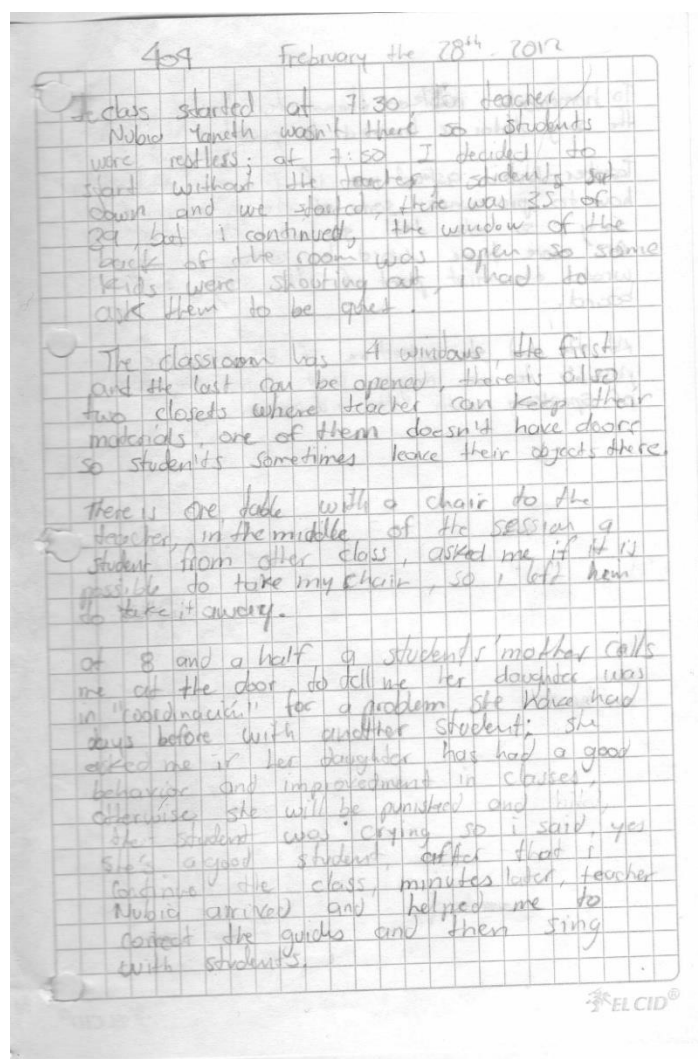 404 February the 28th 2012
class started at 7:30 teacher
Nubia Yaneth wasn't there so students
were restless; at 7:50 I decided to
start without the teacher students sat
down and we started, there was 35 of
39, but i continued, the window of the
back of the room was open so some
kids were shouting out, i had to
ask them to be quiet.
The classroom has 4 windows, the first
and the last can be opened, there is also
two closets where teacher can keep their
materials, one of them doesn't have doors
so students sometimes leave their objects there
There is one table with a chair to the
teacher, in the middle of the session a
student from other class, asked me if it is
possible to take my chair, so i left him
to take it away.
at 8 and a half a students' mother calls
me at the door to tell me her daughter was
in "coordinación" for a problem, she have had
days before with another student; she
asked me if her daughter has had a good
behavior and improvedment in classes,
otherwise she will be punished and
the student was crying so i said, yes
she's a good student, after that i
continue the class, minutes later, teacher
Nubia arrived and helped me to
correct the guides and then sing
with students.
EL CID®